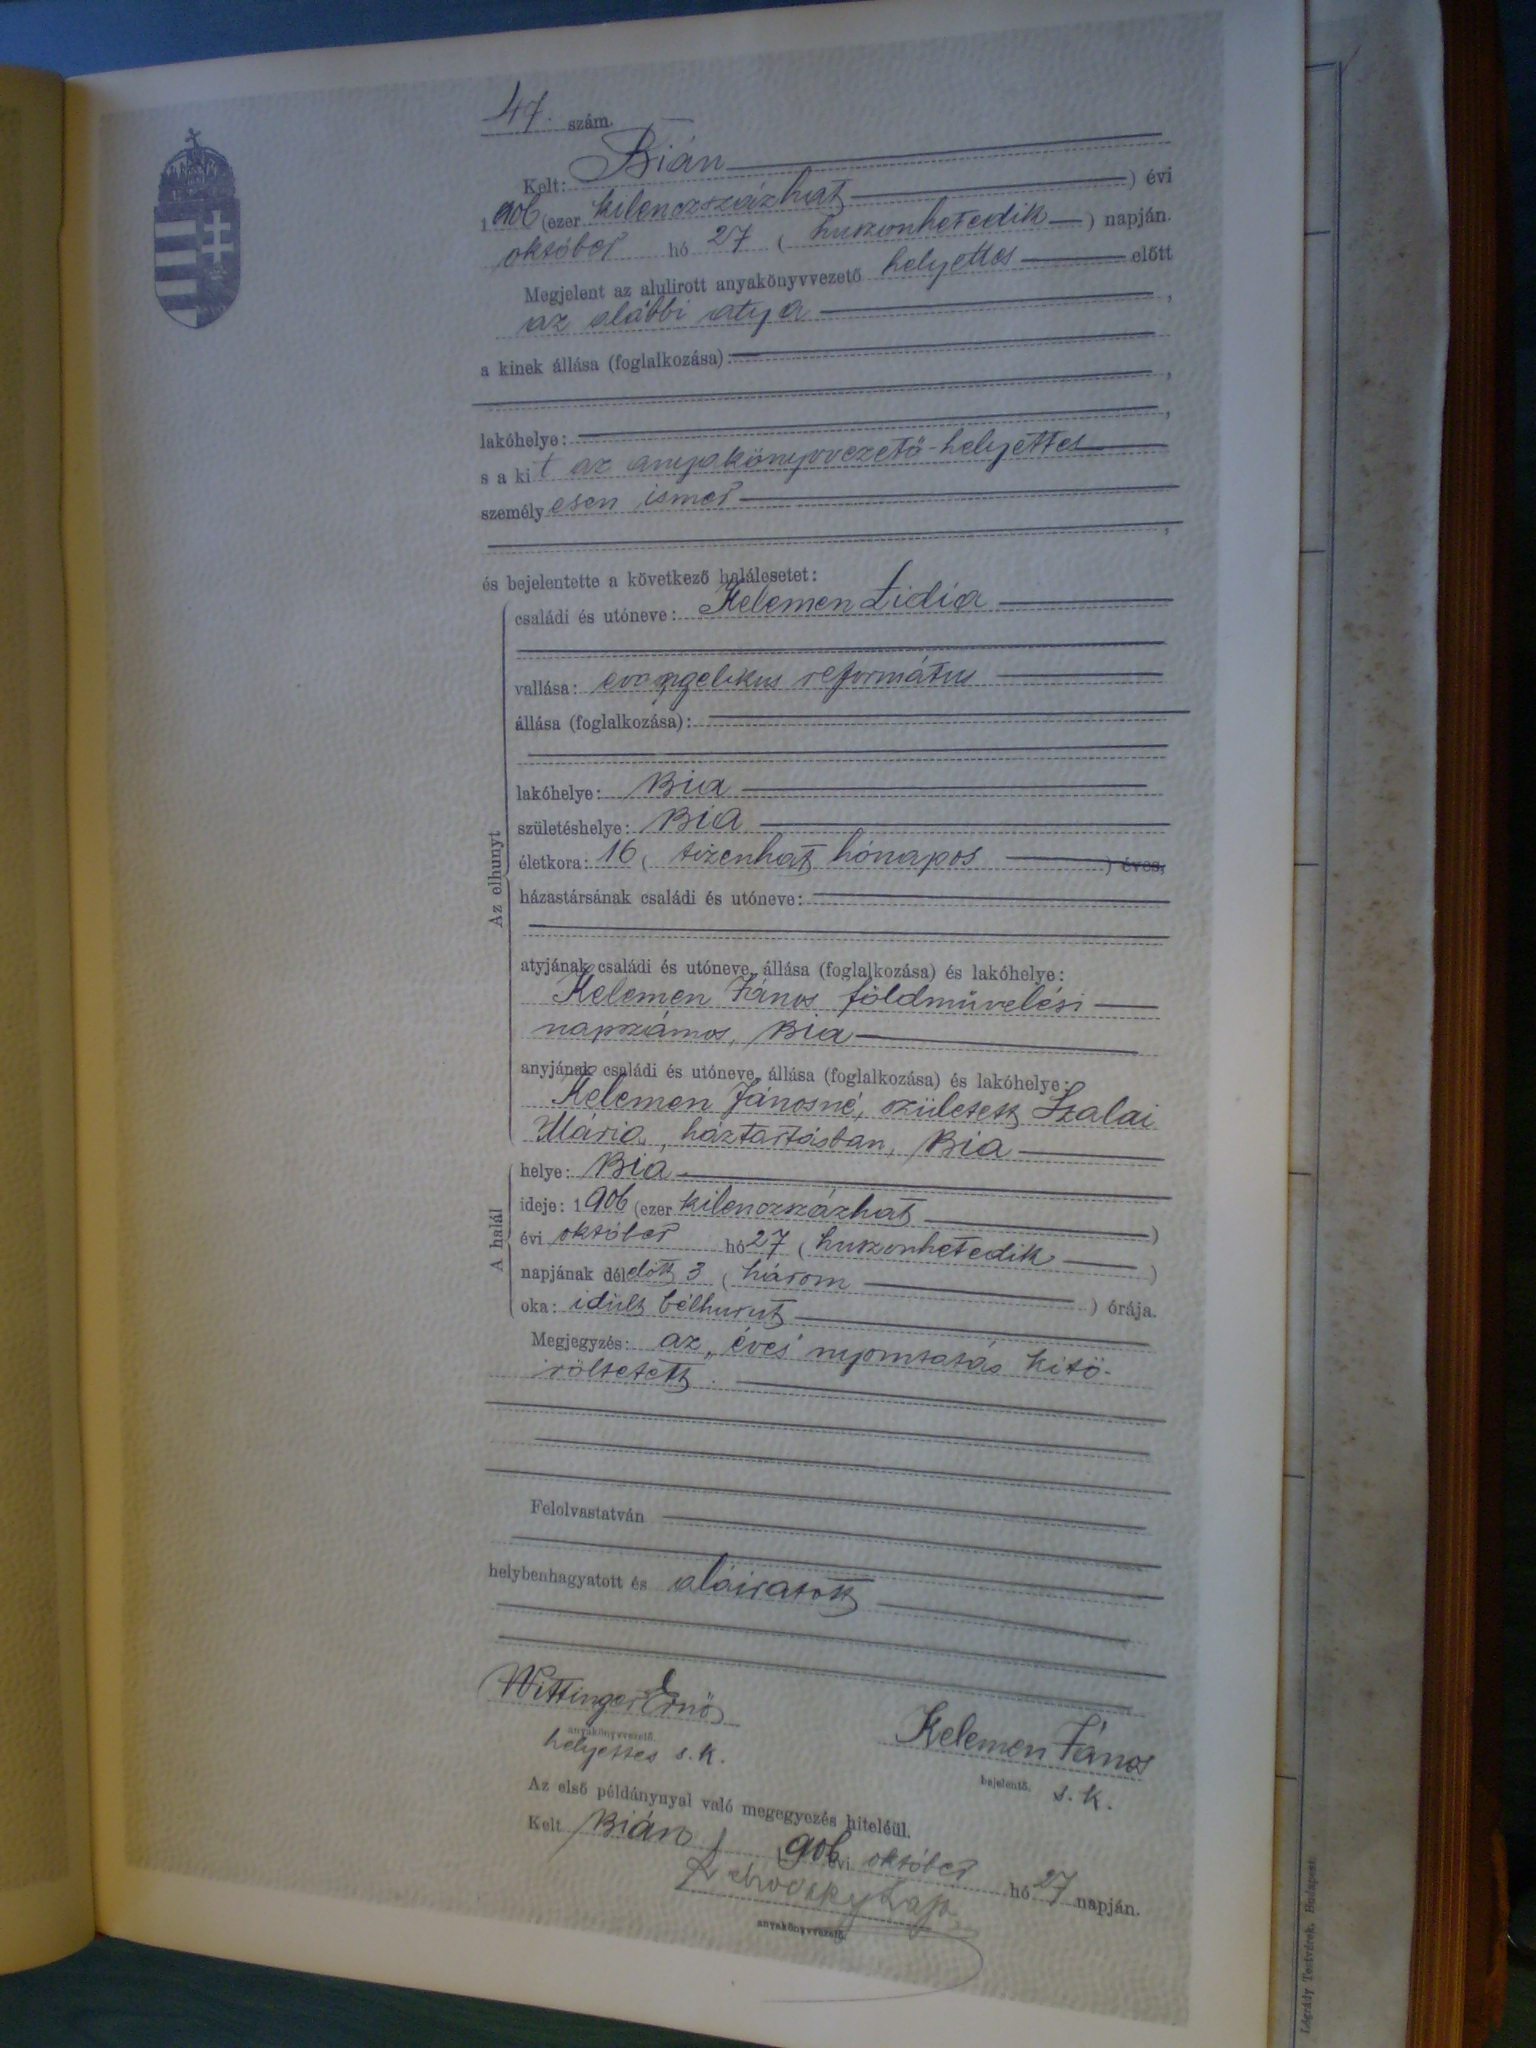 47. szám.
Kelt: Bián
1906 (ezer kilenczszázhat) évi
október hó 27 (huszonhetedik) napján.
Megjelent az alulirott anyakönyvvezető helyettes előtt
az alábbi atya,
a kinek állása (foglalkozása):
,
lakóhelye: ,
s a kit az anyakönyvvezető-helyettes
személyesen ismer
,
és bejelentette a következő halálesetet:
Az elhunyt
családi és utóneve: Kelemen Lidia
vallása: evangelikus református
állása (foglalkozása):
lakóhelye: Bia
születéshelye: Bia
életkora: 16 (tizenhat hónapos) éves,
házastársának családi és utóneve:
atyjának családi és utóneve, állása (foglalkozása) és lakóhelye:
Kelemen János földművelési
napszámos, Bia
anyjának családi és utóneve, állása (foglalkozása) és lakóhelye:
Kelemen Jánosné, született Szalai
Mária, háztartásban, Bia
A halál
helye: Bia
ideje: 1906 (ezer kilenczszázhat)
évi október hó 27 (huszonhetedik)
napjának délelőtt 3 (három) órája.
oka: idült bélhurut
Megjegyzés: az „éves" nyomtatás kitö-
röltetett.
Felolvastatván
helybenhagyatott és aláiratott
Wittinger Ernő
anyakönyvvezető.
helyettes s. k.
Kelemen János
bejelentő. s. k.
Az első példánynyal való megegyezés hiteléül.
Kelt Bián, 1906 évi október hó 27 napján.
anyakönyvvezető.
Légrády Testvérek, Budapest.